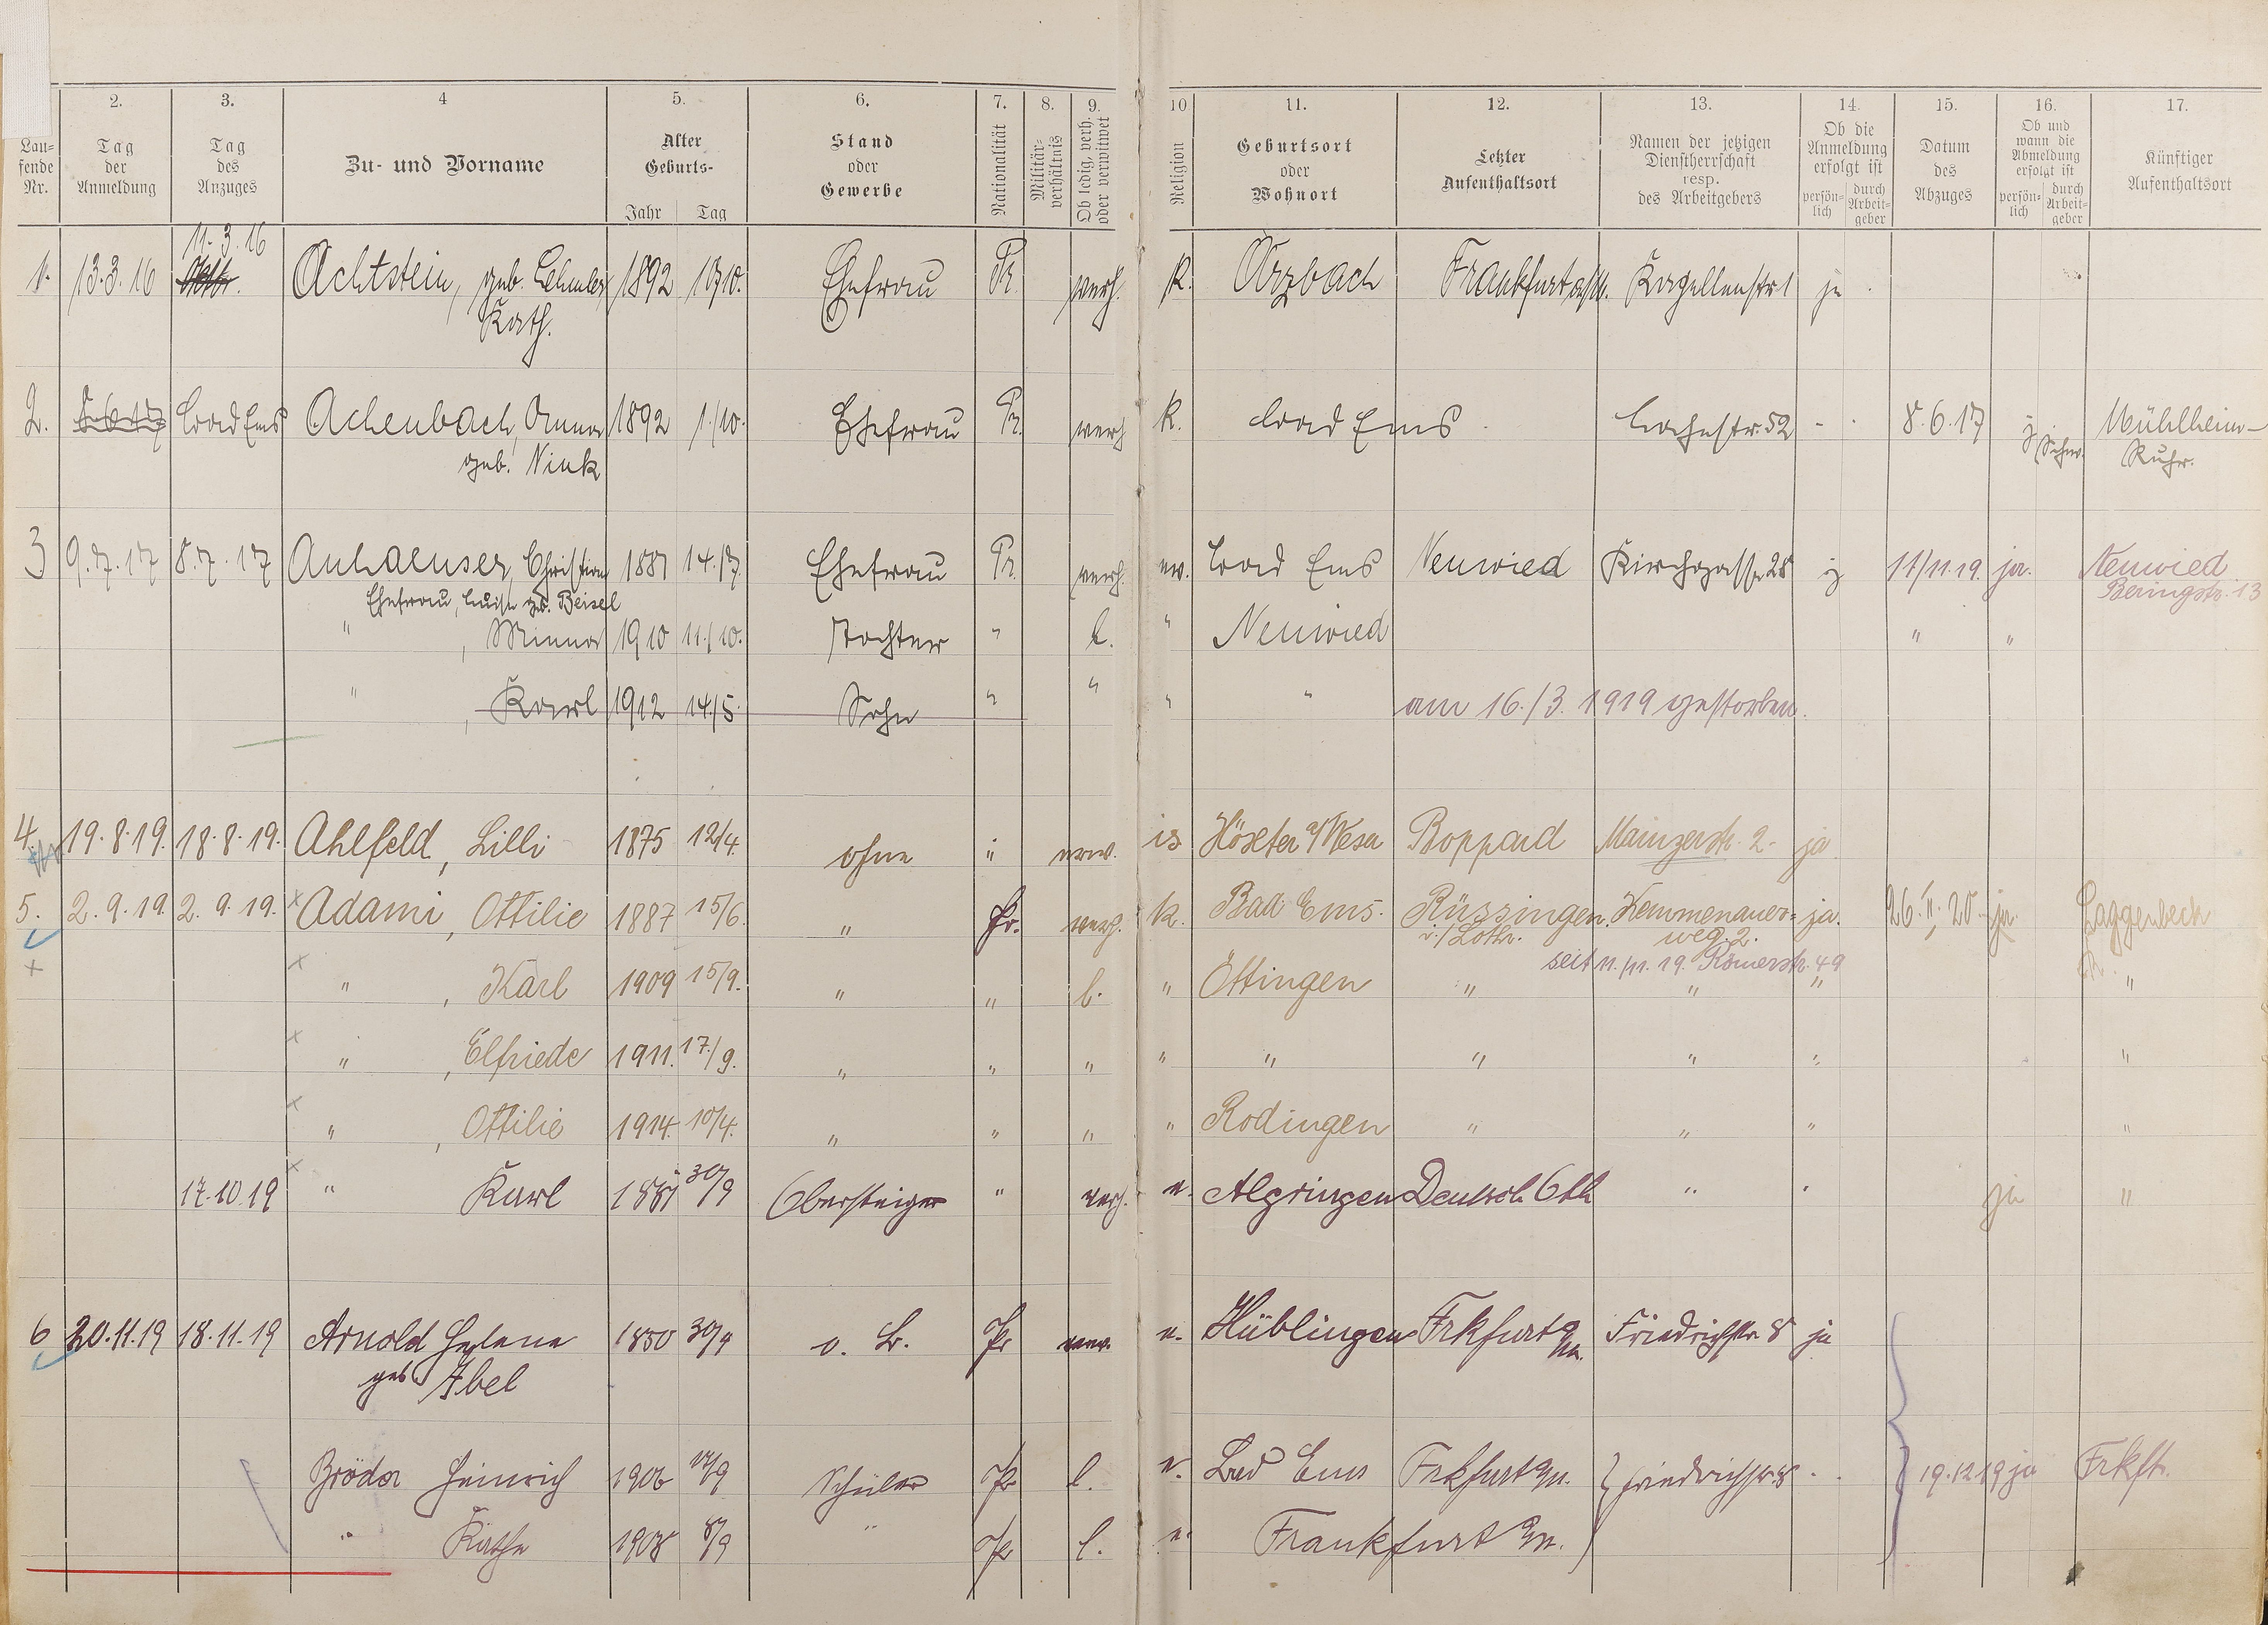 2. 3. 4 5. 6. 7. 8. 9. 10 11. 12. 13. 14. 15. 16. 17.
Lau-
fende
Nr.
Tag
der
Anmeldung
Tag
des
Anzuges
Zu- und Vorname
Alter
Geburts-
Jahr Tag
Stand
oder
Gewerbe
Nationalität
Militär-
verhältnis
Ob ledig, verh.
oder verwitwet
Religion
Geburtsort
oder
Wohnort
Letzter
Aufenthaltsort
Namen der jetzigen
Dienstherrschaft
resp.
des Arbeitgebers
Ob die
Anmeldung
erfolgt ist
persön-
lich
durch
Arbeit-
geber
Datum
des
Abzuges
Ob und
wann die
Abmeldung
erfolgt ist
persön-
lich
durch
Arbeit-
geber
Künftiger
Aufenthaltsort
11. 3. 16
1. 13. 3. 16 Achtstein, geb. 1892 Ehefrau Pr. verh. K. Arzbach Frankfurt a/M. Kapellenstr 1 ja
Kath.
2. Bad Ems Achenbach, Anna 1892 1./10. Ehefrau Pr. verh K. Bad Ems Lahnstr. 52 - 8. 6. 17 j Mühlheim-
geb. Nink Ruhr.
3 9. 7. 17 8. 7. 17 Anhaeuser, Christian 1881 14./7. Ehefrau Pr. verh. ev. Bad Ems Neuwied Kirchgasse 28 j 11/11. 19. ja. Neuwied
Ehefrau, Luise geb. Beisel Beringstr. 13
" , Minna 1910 11./10. Tochter " l. " Neuwied " "
" , Karl 1912 14./5. Sohn " " " " am 16./3. 1919 gestorben.
4. 19. 8. 19. 18. 8. 19. Ahlfeld, Lilli 1875 12/4. ohne " verw. is Höxter a/Weser Boppard Mainzerstr. 2. ja
5. 2. 9. 19. 2. 9. 19. x Adami, Ottilie 1887 15/6. " Pr. verh. K. Bad Ems. Rüssingen. Kemmenauer- ja. 26. II. 20. ja. Laggenbeck
i./Lothr. weg. 2.
seit 11./11. 19. Römerstr. 49
x " , Karl 1909 15/9. " " l. " Öttingen " " " "
x " , Elfriede 1911. 17./9. " " " " " " " " "
x " , Ottilie 1914. 10/4. " " " " Rodingen " " " "
17. 10. 19 x " Karl 1881 30/9 Obersteiger " verh. e. Algringen Deutsch Oth " " ja "
6 20. 11. 19 18. 11. 19 Arnold Helene 1850 30/4 o. B. Pr verw. e. Hüblingen Frkfurt a/M. Friedrichstr. 8 ja
geb. Abel
Bröder Heinrich 1906 Schüler Pr l. e. Bad Ems Frkfurt a/M. Friedrichstr. 8 - 19. 12. 19 ja Frkft.
" Käthe 1908 8/9 " Pr l. e. Frankfurt a/M.